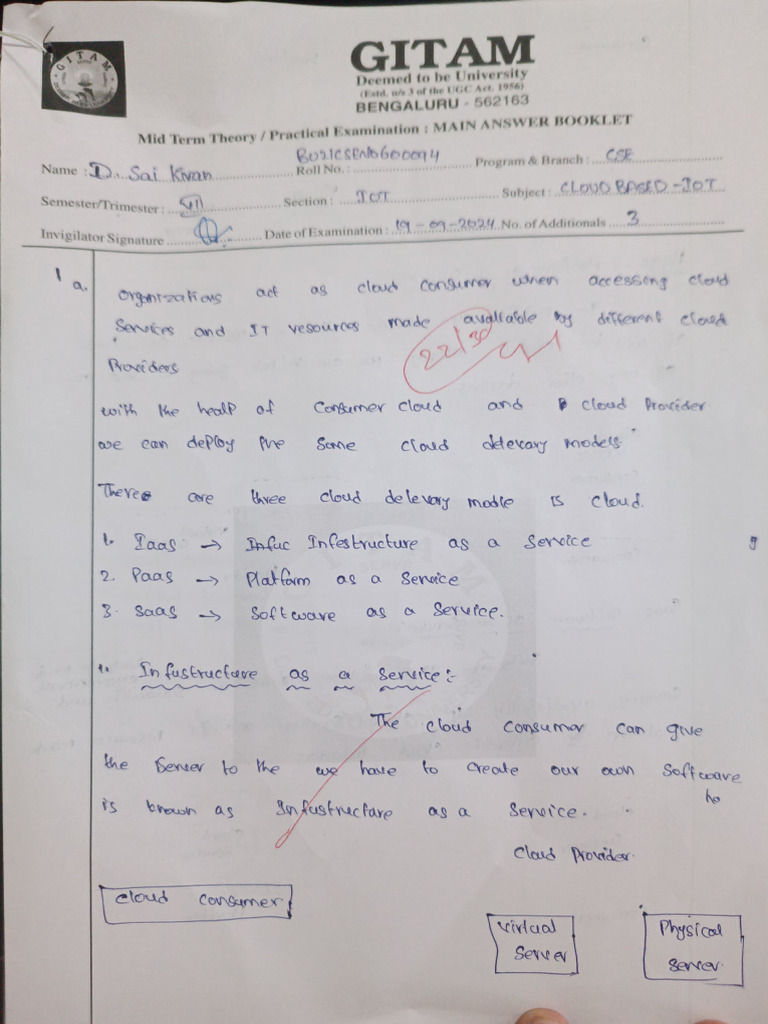 GITAM
GITAM
Deemed to be University
(Estd. u/s 3 of the UGC Act. 1956)
BENGALURU - 562163
Mid Term Theory / Practical Examination : MAIN ANSWER BOOKLET
Name : D. Sai Kiran Roll No. : Program & Branch : CSE
Semester/Trimester : VII Section : IOT Subject : CLOUD BASED - IOT
Invigilator Signature Date of Examination : 19-09-2024 No. of Additionals 3
1 a. organizations act as cloud consumer when accessing cloud
Services and IT resources made avaliable by different cloud
22/30
Providers
with the healp of Consumer cloud and cloud Provider.
we can deploy the some cloud delevary models.
There are three cloud delevary modle is cloud.
1. Iaas → Infestructure as a Service
2. Paas → Platform as a Service
3. Saas → Software as a Service.
1. Infustructure as a Service:-
The cloud consumer can give
the Server to the we have to create our own Software
to
is known as Infustructure as a Service.
Cloud Provider.
cloud consumer
Virtual Server
Physical Server